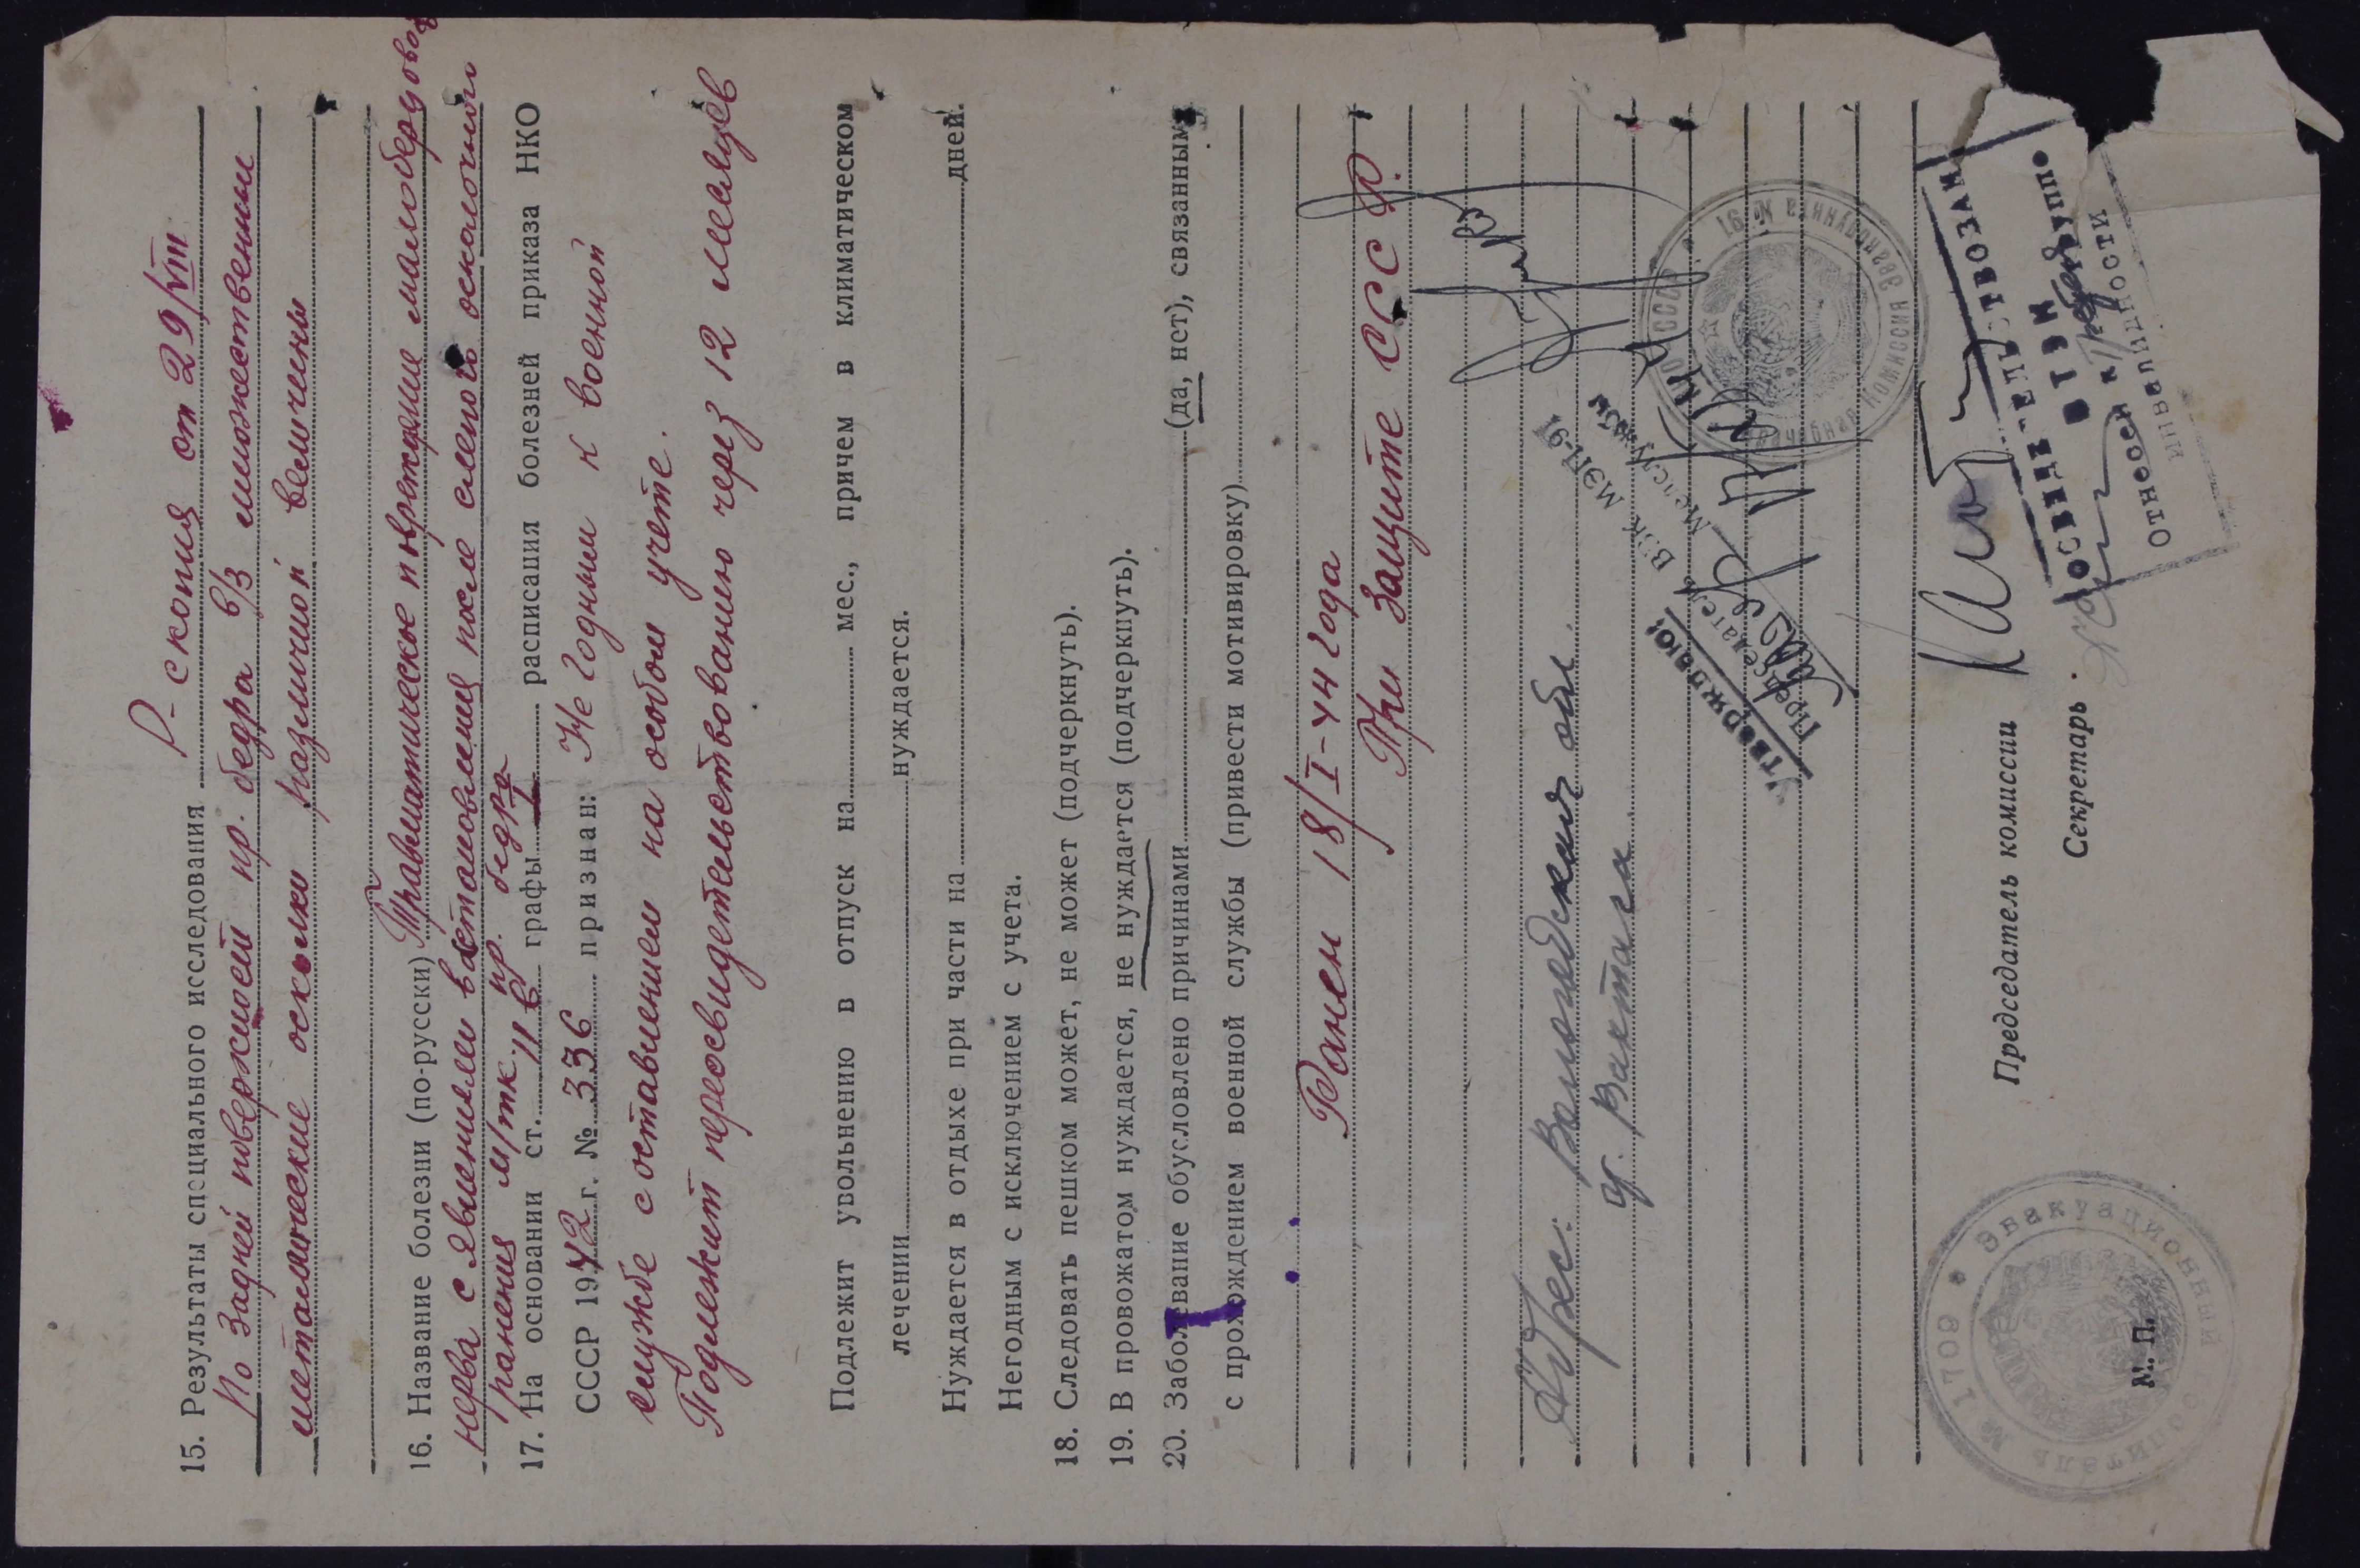 15. Результаты специального исследования Р-скопия от 29/VIII
По задней поверхности пр. бедра в/з множественные
металлические осколки различной величины
16. Название болезни (по-русски) Травматическое повреждение малоберцового
нерва с явлениями восстановления после слепого осколочного
ранения м/тк. пр. бедра
17. На основании ст. 11 б графы I расписания болезней приказа НКО
СССР 1942 г. № 336 признан: Не годным к военной
службе с оставлением на особом учете.
Подлежит переосвидетельствованию через 12 месяцев
Подлежит увольнению в отпуск на мес., причем в климатическом
лечении нуждается.
Нуждается в отдыхе при части на дней.
Негодным с исключением с учета.
18. Следовать пешком может, не может (подчеркнуть).
19. В провожатом нуждается, не нуждается (подчеркнуть).
20. Заболевание обусловлено причинами (да, нет), связанными
с прохождением военной службы (привести мотивировку)
Ранен 18/I-44 года
При защите СССР.
Адрес: Вологодская обл.
УТВЕРЖДАЮ!
Председатель ВЭК МЭП-91
Председатель комиссии
Секретарь
ОСВИДЕТЕЛЬСТВОЗАН
в ВТЭК
Отнесен к группе
инвалидности
М. П.
Эвакуационный госпиталь № 1709